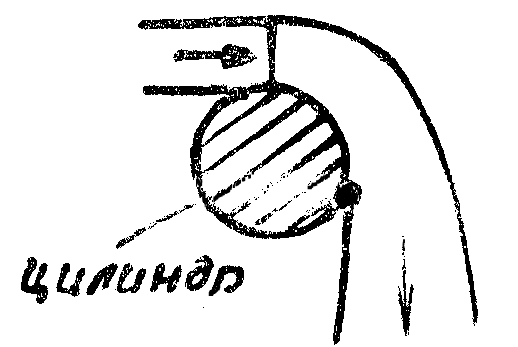 цилиндр